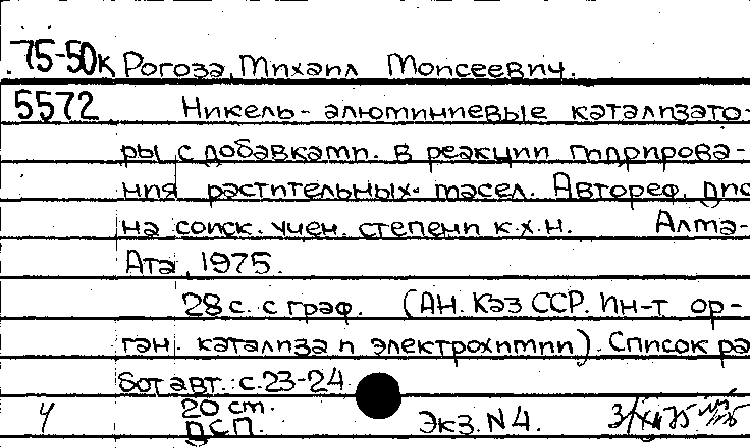 75-50к Рогоза, Михаил Моисеевич.
5572 Никель-алюминиевые катализато-
ры с добавками. в реакции гидрирова-
ния растительных масел. Автореф. дис
на соиск. учен. степени к.х.н. Алма-
Ата, 1975.
28 с. с граф. (АН. Каз ССР. Ин-т ор-
ган. катализа и электрохимии). Список ра
бот авт.: с. 23-24
20 см.
ДСП. Экз. N 4.